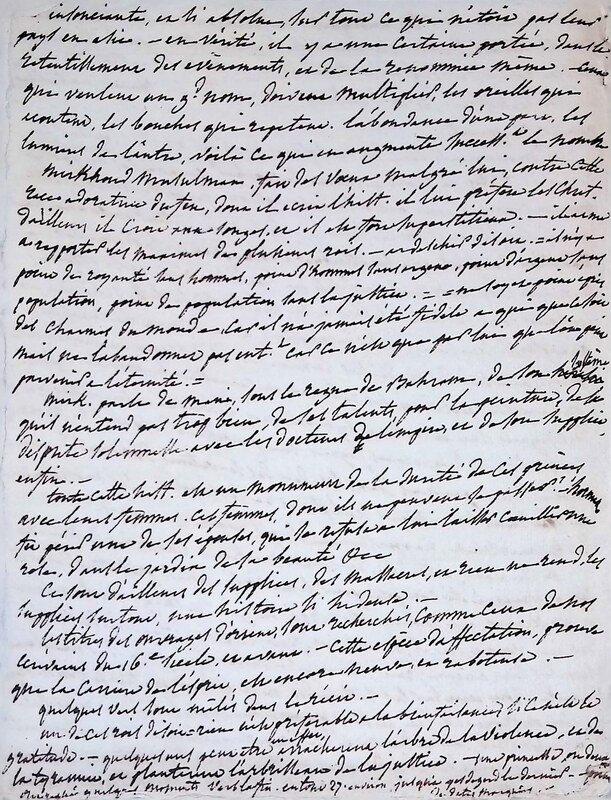 insouciante, et si absolue, sur tout ce qui n'étoit pas leur
pays en elie. — en vérité, il y a une certaine portée, dans le
retentissement des évènements, et de la renommée même. — ceux
qui veulent un gd nom, doivent multiplier, les oreilles qui
écoutent, les bouches qui repetent. l'abondance d'une part, les
lumieres de l'autre, voilà ce qui en augmente le nombre
Mirkhond Musulman, fait des vœux malgré lui, contre cette
race adoratrice du feu, dont il écrit l'hist. il lui préfere les Chret.
d'ailleurs il croit aux songes, et il est fort superstitieux. — il aime
a rapporter les maximes de plusieurs rois. — ardschir disoit. = il n'y a
point de royauté sans hommes, point d'hommes sans argent, point d'argent sans
population, point de population sans la justice. = = ne soyez point épris
des charmes du monde, car il n'a jamais été fidele a qui que ce soit
mais ne l'abandonnez pas entt. car ce n'est que par lui que l'on peut
parvenir a l'éternité. =
Mirk. parle de Mani, sous le regne de Bahram, de son systême
qu'il n'entend pas trop bien, de ses talents, pour la peinture, de la
dispute solemnelle avec les docteurs de l'empire, et de son supplice
enfin. —
toute cette hist. est un monument de la dureté de ces princes
avec leurs femmes. ces femmes, dont ils ne peuvent se passer.
fit périr une de ses épouses, qui se refusa a lui laisser cueillir une
rose, dans le jardin de sa beauté &cc
Ce sont d'ailleurs des supplices, des massacres, et rien ne rend, les
supplices surtout, une histoire si hideuse. —
les titres des ouvrages d'orient, sont recherchés, comme ceux de nos
écrivains du 16e siecle, et avant. — cette espece d'affectation, prouve
que la carriere de l'esprit, est encore neuve, et raboteuse. —
quelques vers sont mêlés dans le récit. —
un de ces rois disoit = rien n'est préférable a la bienfaisance, si ce n'est la
gratitude. — quelques uns peut être arracherent l'arbre de la violence, et de
la tyrannie, et planterent l'arbrisseau de la justice. —
quelques environ, jusqu'a